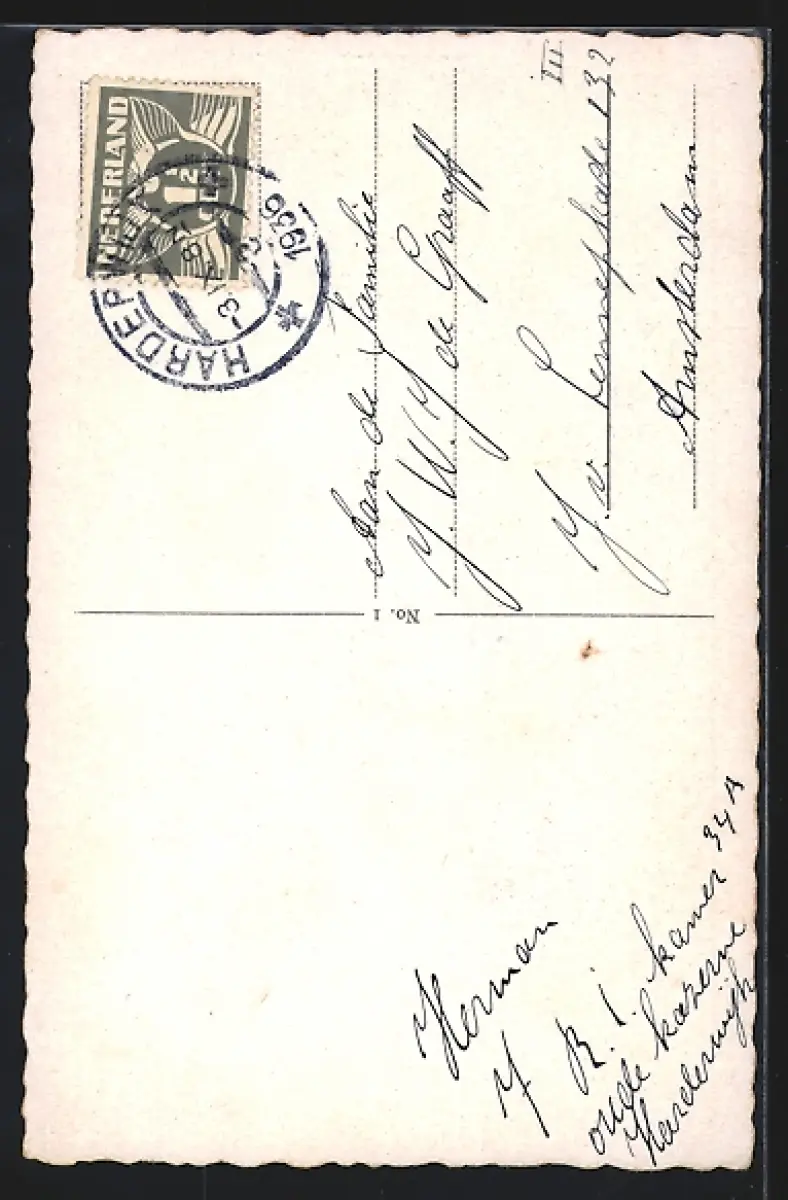 NEDERLAND
1½
HARDERWIJK
1936
Aan de Familie
J. W. J de Graaff
J. v. Lennepkade 132 III
Amsterdam
No. 1
Herman
7 R. I. kamer 34 A
oude kazerne
Harderwijk